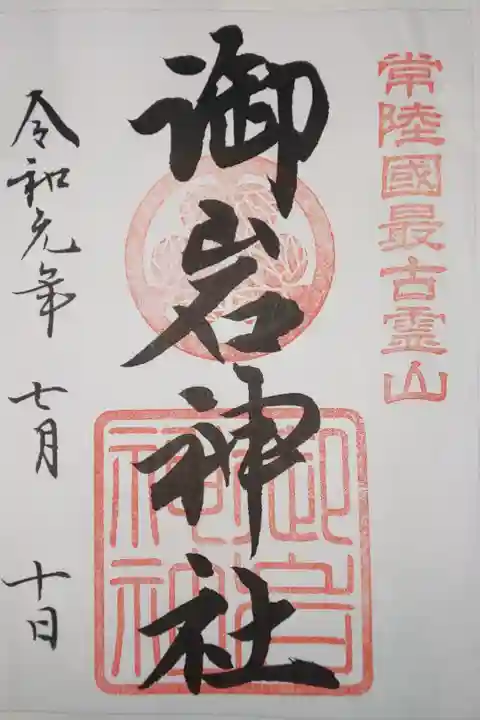 常陸國最古霊山
御岩神社
令和元年 七月 十日
御岩神社